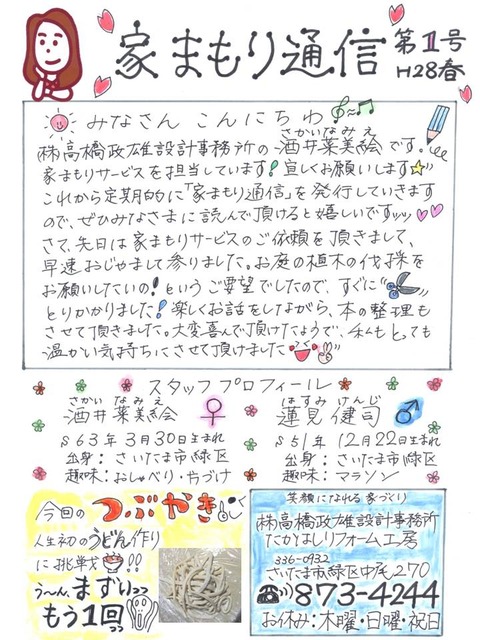 家まもり通信 第1号
H28春
みなさん こんにちわ
さかいなみえ
㈱高橋政雄設計事務所の 酒井菜美絵です。
家まもりサービスを担当しています!宜しくお願いします
これから定期的に「家まもり通信」を発行していきます
ので、ぜひみなさまに読んで頂けると嬉しいです
さて、先日は家まもりサービスのご依頼を頂きまして、
早速おじゃまして参りました。お庭の植木の伐採を
お願いしたいの!というご要望でしたので、すぐに
とりかかりました!楽しくお話をしながら、本の整理も
させて頂きました。大変喜んで頂けたようで、私もとっても
温かい気持ちにさせて頂けました
スタッフプロフィール
さかい なみえ
酒井 菜美絵 ♀
S63年 3月30日生まれ
出身: さいたま市緑区
趣味: おしゃべり・やづけ
はすみ けんじ
蓮見 健司 ♂
S51年 12月22日生まれ
出身: さいたま市緑区
趣味: マラソン
今回の つぶやき
人生初のうどん作り
に挑戦 !!
う〜ん、まずいっっ
もう1回っっ
笑顔になれる 家づくり
㈱高橋政雄設計事務所
たかはしリフォーム工房
336-0932
さいたま市緑区中尾270
873-4244
お休み:木曜・日曜・祝日